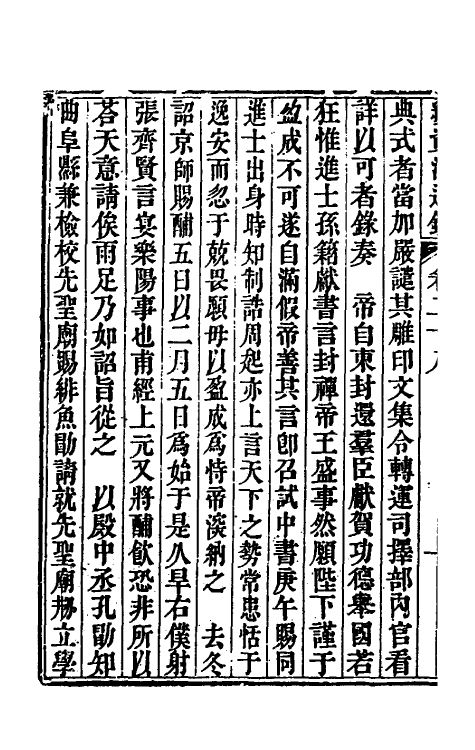 典式者當加嚴譴其雕印文集令轉運司擇部內官看
詳以可者錄奏　帝自東封還羣臣獻賀功德舉國若
狂惟進士孫籍獻書言封禪帝王盛事然願陛下謹于
盈成不可遂自滿假帝善其言卽召試中書庚午賜同
進士出身時知制誥周起亦上言天下之勢常患恬于
逸安而忽于兢畏願毋以盈成爲恃帝深納之　去冬
詔京師賜酺五日以二月五日爲始于是久旱右僕射
張齊賢言宴樂陽事也甫經上元又將酺飲恐非所以
荅天意請俟雨足乃如詔旨從之　以殿中丞孔勖知
曲阜縣兼檢校先聖廟賜緋魚勖請就先聖廟㓨立學